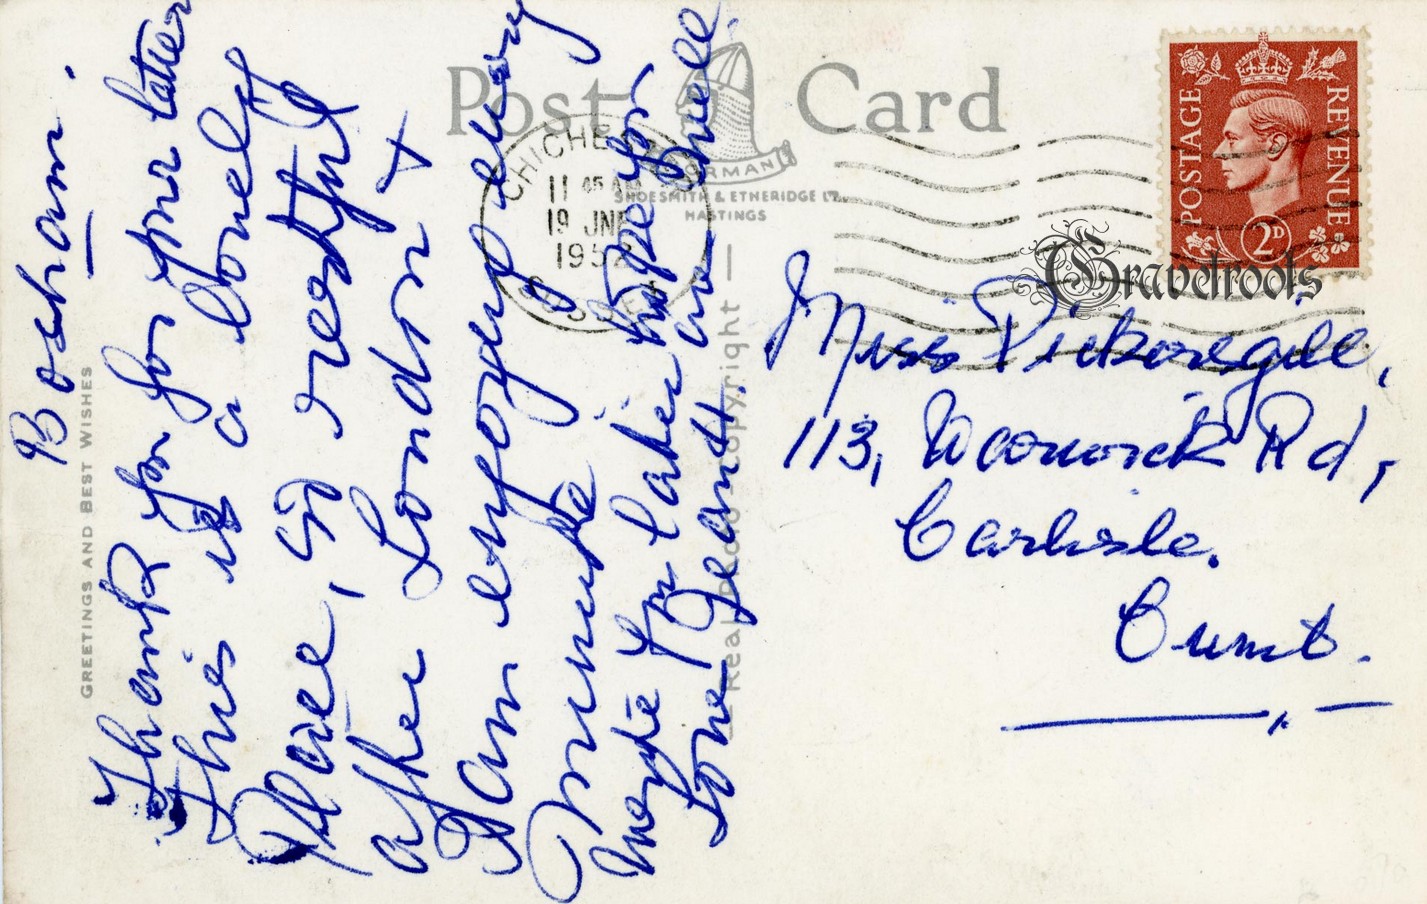 Bosham.
Thank you for your letter
This is a lonely
place, so restful
after London +
I am enjoying every
minute hope you
write you later are well
Love Jeant.
Post Card
NORMAN
SHOESMITH & ETHERIDGE LTD.
HASTINGS
CHICHESTER
11 45 AM
19 JNE
1952
SUSSEX
POSTAGE REVENUE
2D
Graveltroots
Miss Pickersgill,
113, Warwick Rd,
Carlisle.
Cumb.
GREETINGS AND BEST WISHES
Real Photo Copyright